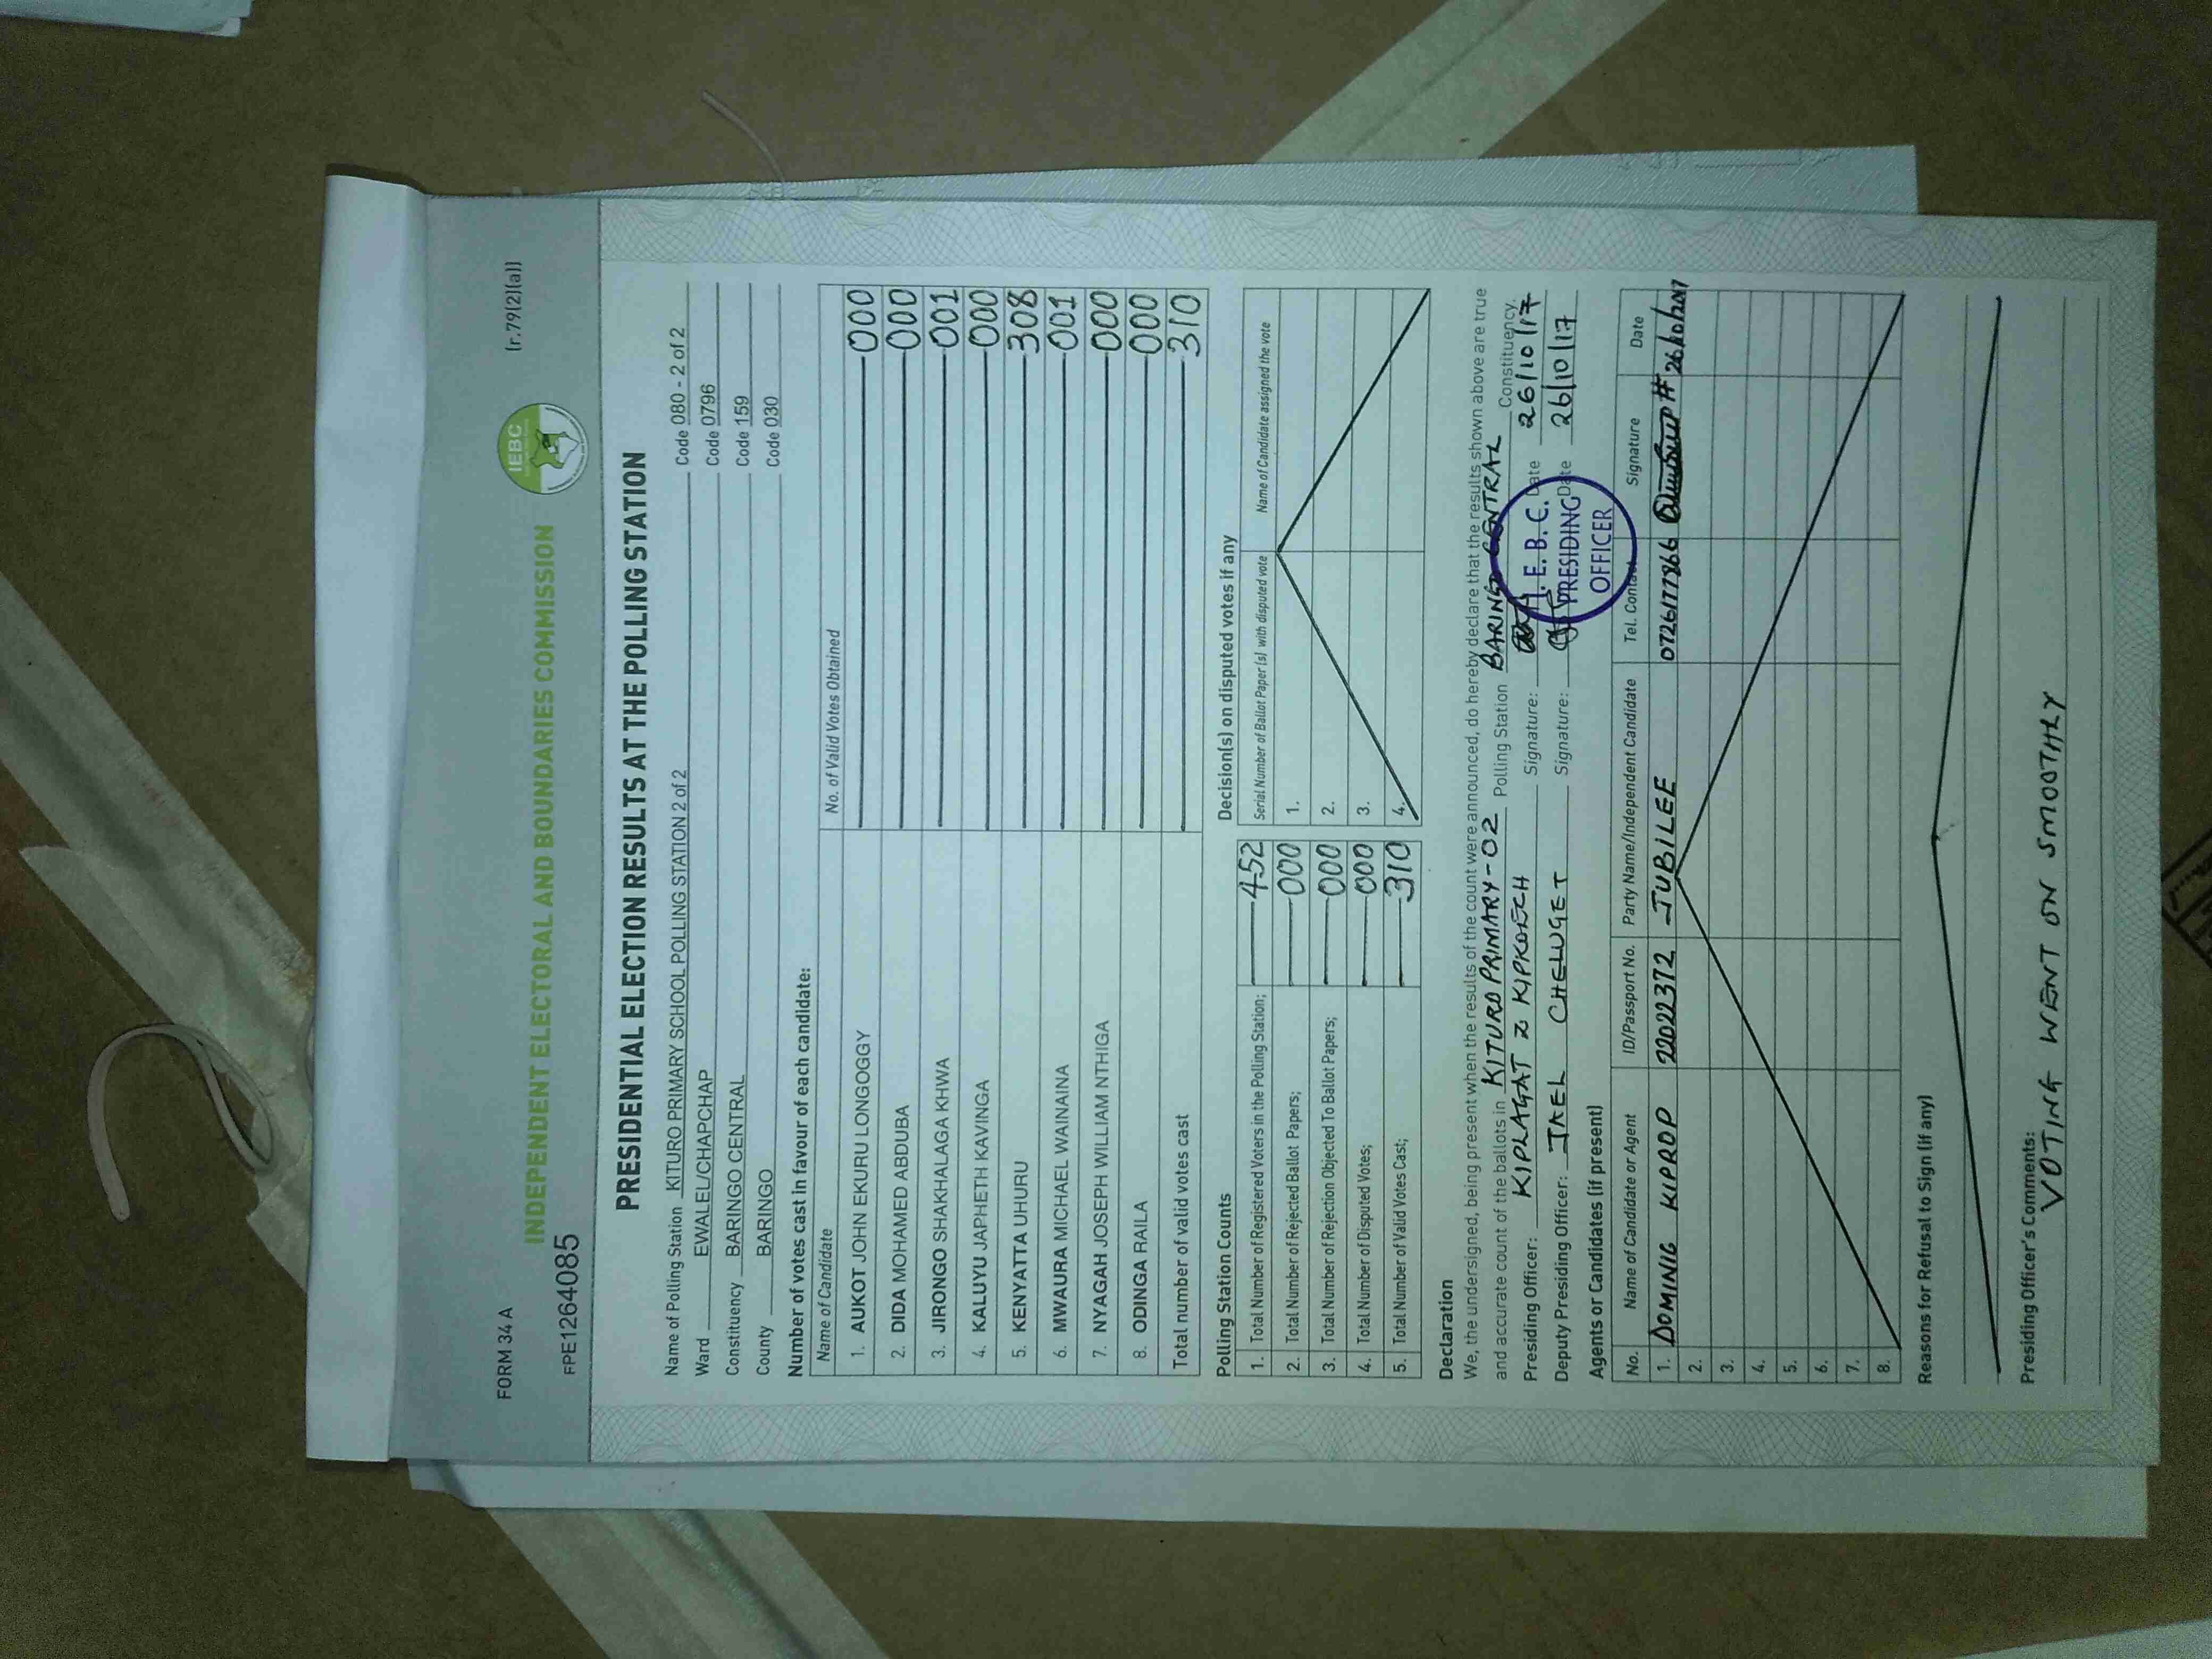 FORM 34 A
(r.79(2)(a))
IEBC
INDEPENDENT ELECTORAL AND BOUNDARIES COMMISSION
FPE1264085
PRESIDENTIAL ELECTION RESULTS AT THE POLLING STATION
Name of Polling Station KITURO PRIMARY SCHOOL POLLING STATION 2 of 2 Code 080 - 2 of 2
Ward EWALEL/CHAPCHAP Code 0796
Constituency BARINGO CENTRAL Code 159
County BARINGO Code 030
Number of votes cast in favour of each candidate:
Name of Candidate No. of Valid Votes Obtained
1. AUKOT JOHN EKURU LONGOGGY 000
2. DIDA MOHAMED ABDUBA 000
3. JIRONGO SHAKHALAGA KHWA 001
4. KALUYU JAPHETH KAVINGA 000
5. KENYATTA UHURU 308
6. MWAURA MICHAEL WAINAINA 001
7. NYAGAH JOSEPH WILLIAM NTHIGA 000
8. ODINGA RAILA 000
Total number of valid votes cast 310
Polling Station Counts
1. Total Number of Registered Voters in the Polling Station; 452
2. Total Number of Rejected Ballot Papers; 000
3. Total Number of Rejection Objected To Ballot Papers; 000
4. Total Number of Disputed Votes; 000
5. Total Number of Valid Votes Cast; 310
Decision(s) on disputed votes if any
Serial Number of Ballot Paper(s) with disputed vote Name of Candidate assigned the vote
1.
2.
3.
4.
Declaration
We, the undersigned, being present when the results of the count were announced, do hereby declare that the results shown above are true
and accurate count of the ballots in KITURO PRIMARY-02 Polling Station BARINGO CENTRAL Constituency.
Presiding Officer: KIPLAGAT Z KIPKOECH Signature: Date 26/10/17
Deputy Presiding Officer: JAEL CHELUGET Signature: Date 26/10/17
I. E. B. C.
PRESIDING
OFFICER
Agents or Candidates (if present)
No. Name of Candidate or Agent ID/Passport No. Party Name/Independent Candidate Tel. Contact Signature Date
1. DOMINIC KIPROP 22022372 JUBILEE 0726177266 26/10/2017
2.
3.
4.
5.
6.
7.
8.
Reasons for Refusal to Sign (if any)
Presiding Officer's Comments:
VOTING WENT ON SMOOTHLY